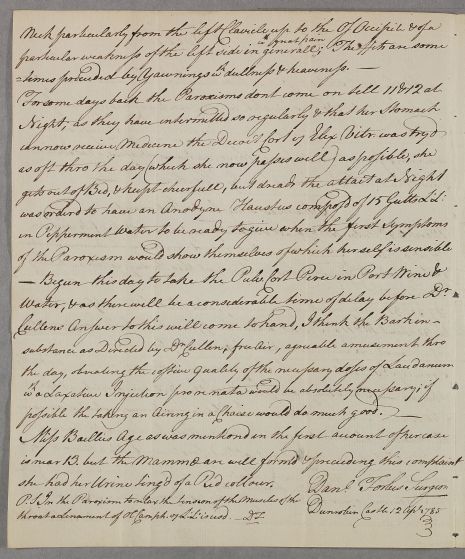 Neck particularly from the left Clavicle up to the Os Occipit & of a
particular weakness of the left side in generall; wt great pain The ffitts are some
=times preceeded by Yawnings wt dullness & heaviness. —
For some days back the Paroxisms dont come on till 11 & 12 at
Night, as they have intermitted so regularly & that her Stomach
can now receive Medicine the Decoct Cort & Elix Vitr. was try'd
as oft thro the day (which she now passes well) as possible, she
gets out of Bed, & kept chearfull, but dreads the attact at Night
was ordered to have an Anodyne Haustus compos'd of 15 Gutts Ld:
in Pepperment Water to be ready to give when the first Symptoms
of the Paroxism would show themselves of which herself is sensible
— Begun this day to take the Pulv: Cort Peru in Port Wine &
Water, & as there will be a considerable time of delay before Dr.
Cullens Answer to this will come to hand, I think the Bark in
substance as Directed by Dr Cullen, free Air, agreable amusement thro
the day, obviating the costive quality of the necessary doses of Laudanum
wt a Laxative Injection pro re nata would be absolutely necessary; if
possible the taking an Airing in a Chaise would do much good. —
Miss Baillies Age as was mentiond in the first account of her case
is near 13. but the Mammæ are well form'd & preceeding this complaint
she had her Urine ting'd of a Red collour.
Danl. Forbes Surgeon
P.S. In the Paroxism to allay the tension of the Muscles of the
throat a Linament of Ol Camph: & L: Liquid — Dt.
Dunrobin Castle 12 Apl. 1785
3